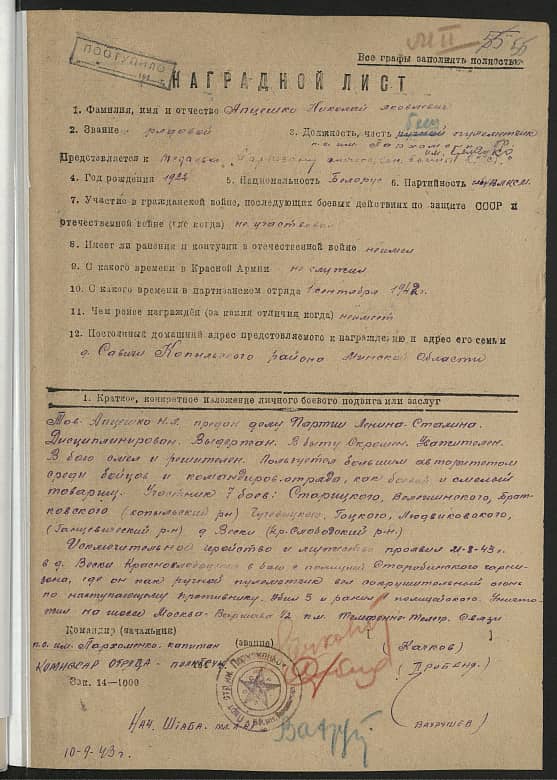 ПОСТУПИЛО
Все графы заполнять полностью
НАГРАДНОЙ ЛИСТ
1. Фамилия, имя и отчество Апцешко Николай Яковлевич
2. Звание рядовой 3. Должность, часть пулеметчик
п.о. им. Пархоменко
Представляется к медаль „Партизану
4. Год рождения 5. Национальность Белорус 6. Партийность ВЛКСМ
7. Участие в гражданской войне, последующих боевых действиях по защите СССР и
отечественной войне (где когда) не участвовал
8. Имеет ли ранения и контузии в отечественной войне неимел
9. С какого времени в Красной Армии не служил
10. С какого времени в партизанском отряде 1 сентября 1942 г.
11. Чем ранее награждён (за какия отличия, когда) неимеет
12. Постоянный домашний адрес представляемого к награждению и адрес его семьи
д. Савичи Копильского района Минской Области
1. Краткое, конкретное изложение личного боевого подвига или заслуг
Тов. Апцешко Н.Я. предан делу Партии Ленина-Сталина.
Дисциплинирован. Выдержан. В быту Скромен.
В бою смел и решителен. Пользуется большим авторитетом
среди бойцов и командиров отряда, как боевой и смелый
товарищ. Участник 7 боев: Старицкого, Велешинского, Брат-
ковского (копыльский рн) Гоцкого, Людвиковского,
(Ганцевический р-н) д Вески (Кр.-Слободский р-н.)
Исключительное геройство и мужество проявил 21-8-43 г.
в д. Вески Краснослободского в бою с полицией Старобинского гарни-
зона, где он как ручной пулеметчик вел сокрушительный огонь
по наступающему противнику. Убил 3 и ранил полицейского. Уничто-
жил на шоссе Москва-Варшава 12 пм. Телефонно-Телегр. Связи
Командир (начальник)
п.о. им. Пархоменко. капитан (звание) (Каяков)
Комиссар отряда - политрук
Зак. 14—1000
Нач. Штаба (Вахрушев)
10-9-43 г.